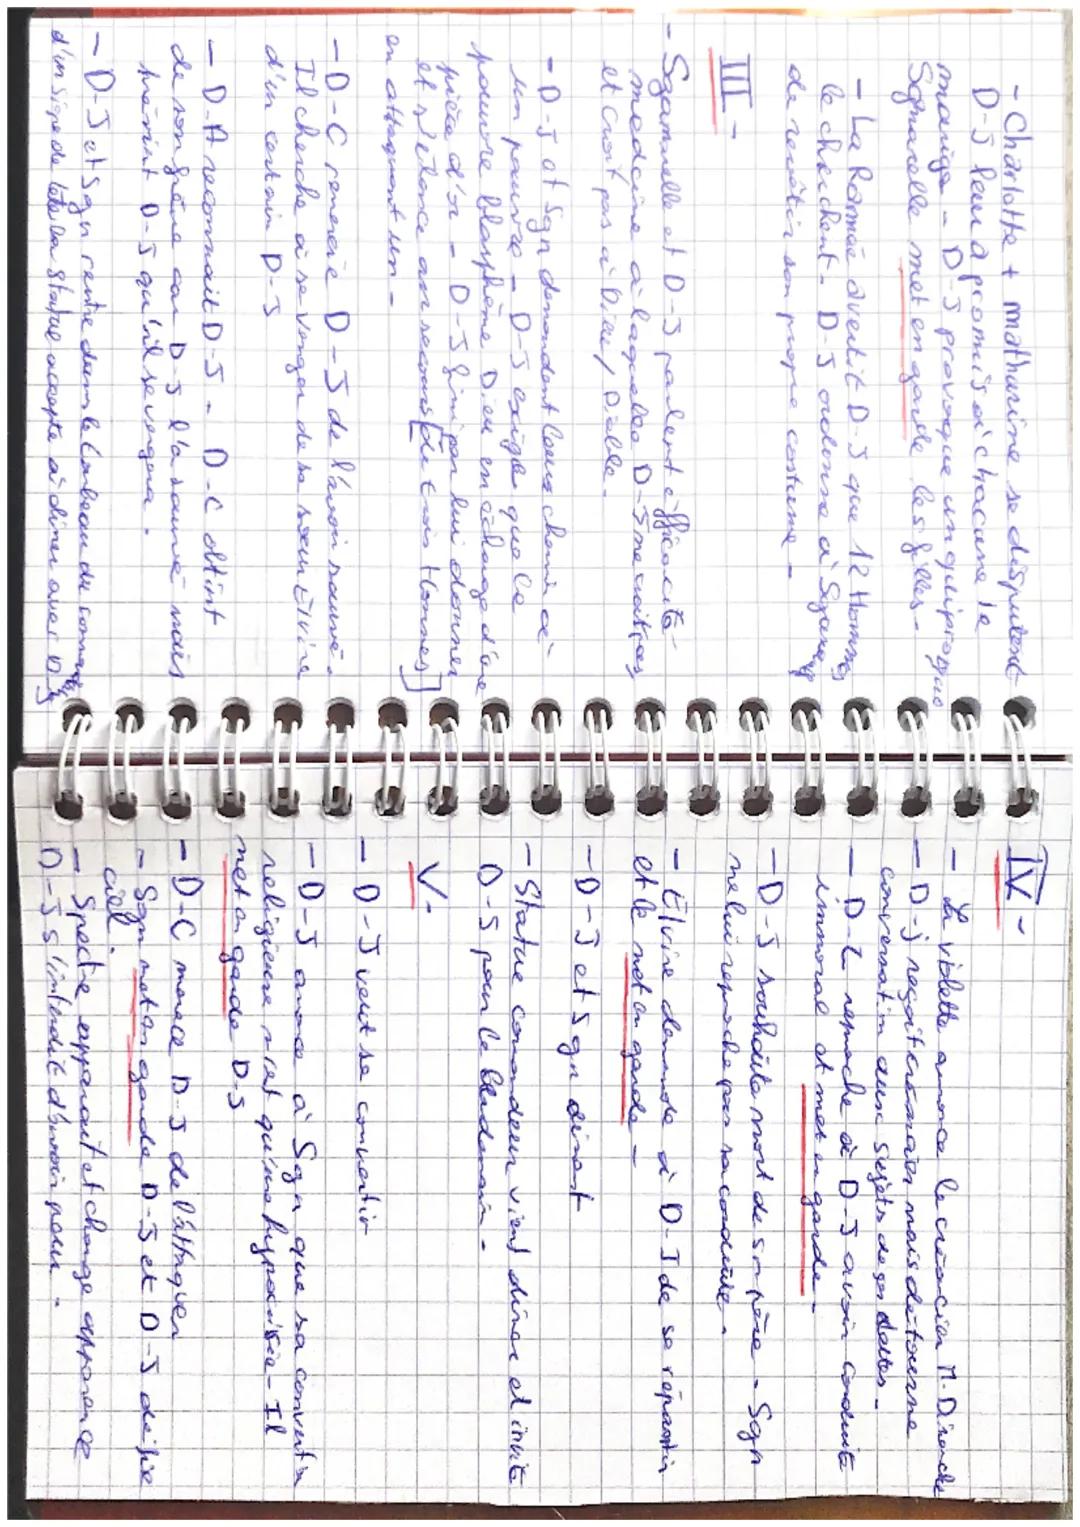 - Charlotte + Mathurine se disputent
D-J leur a promis à chacune le
mariage - D-J provoque un quiproquo
Sgnarelle met en garde les filles -
- La Ramée avertit D-J que 12 Hommes
le cherchent - D-J ordonne à Sganarelle
de revêtir son propre costume -
III -
- Sganarelle et D-J parlent efficacité
medecine à laquelle D-J ne croit pas
et croit pas à Dieu / Diable -
- D-J et Sgn demandent leurs chemin à
un pauvre - D-J exige que le
pauvre blasphème Dieu en échange d'une
pièce d'or - D-J finit par lui donner
et s'élance au secours [de trois Hommes]
en attaquant un -
- D-C remercie D-J de l'avoir sauvé.
Il cherche à se venger de sa soeur Elvire
d'un certain D-J
- D-A reconnait D-J - D-C obtint
de son frère car D-J l'a sauvé mais
prévint D-J qu'il se vengera.
- D-J et Sgn rentre dans le tombeau du comman
d'un signe de tête la statue accepte à diner avec D-J
IV -
- La violette annonce le créancier M. Dimanche
- D-J reçoit créancier mais détourne
conversation aux sujets de ses dettes -
- D-L reproche à D-J avoir conduite
immoral et met en garde -
- D-J souhaite mort de son père - Sgn
ne lui reproche pas sa conduite -
- Elvire demande à D-J de se repentir
et le met en garde -
- D-J et Sgn dinent
- Statue Commandeur vient diner et invite
D-J pour le lendemain -
V -
- D-J veut se convertir
- D-J avoue à Sgn que sa convertion
religieuse n'est qu'une hypocrisie - Il
met en garde D-J
- D-C menace D-J de l'attaquer
- Sgn met en garde D-J et D-J défie
ciel.
- Spectre apparait et change apparence
D-J s'interdit d'avoir peur -